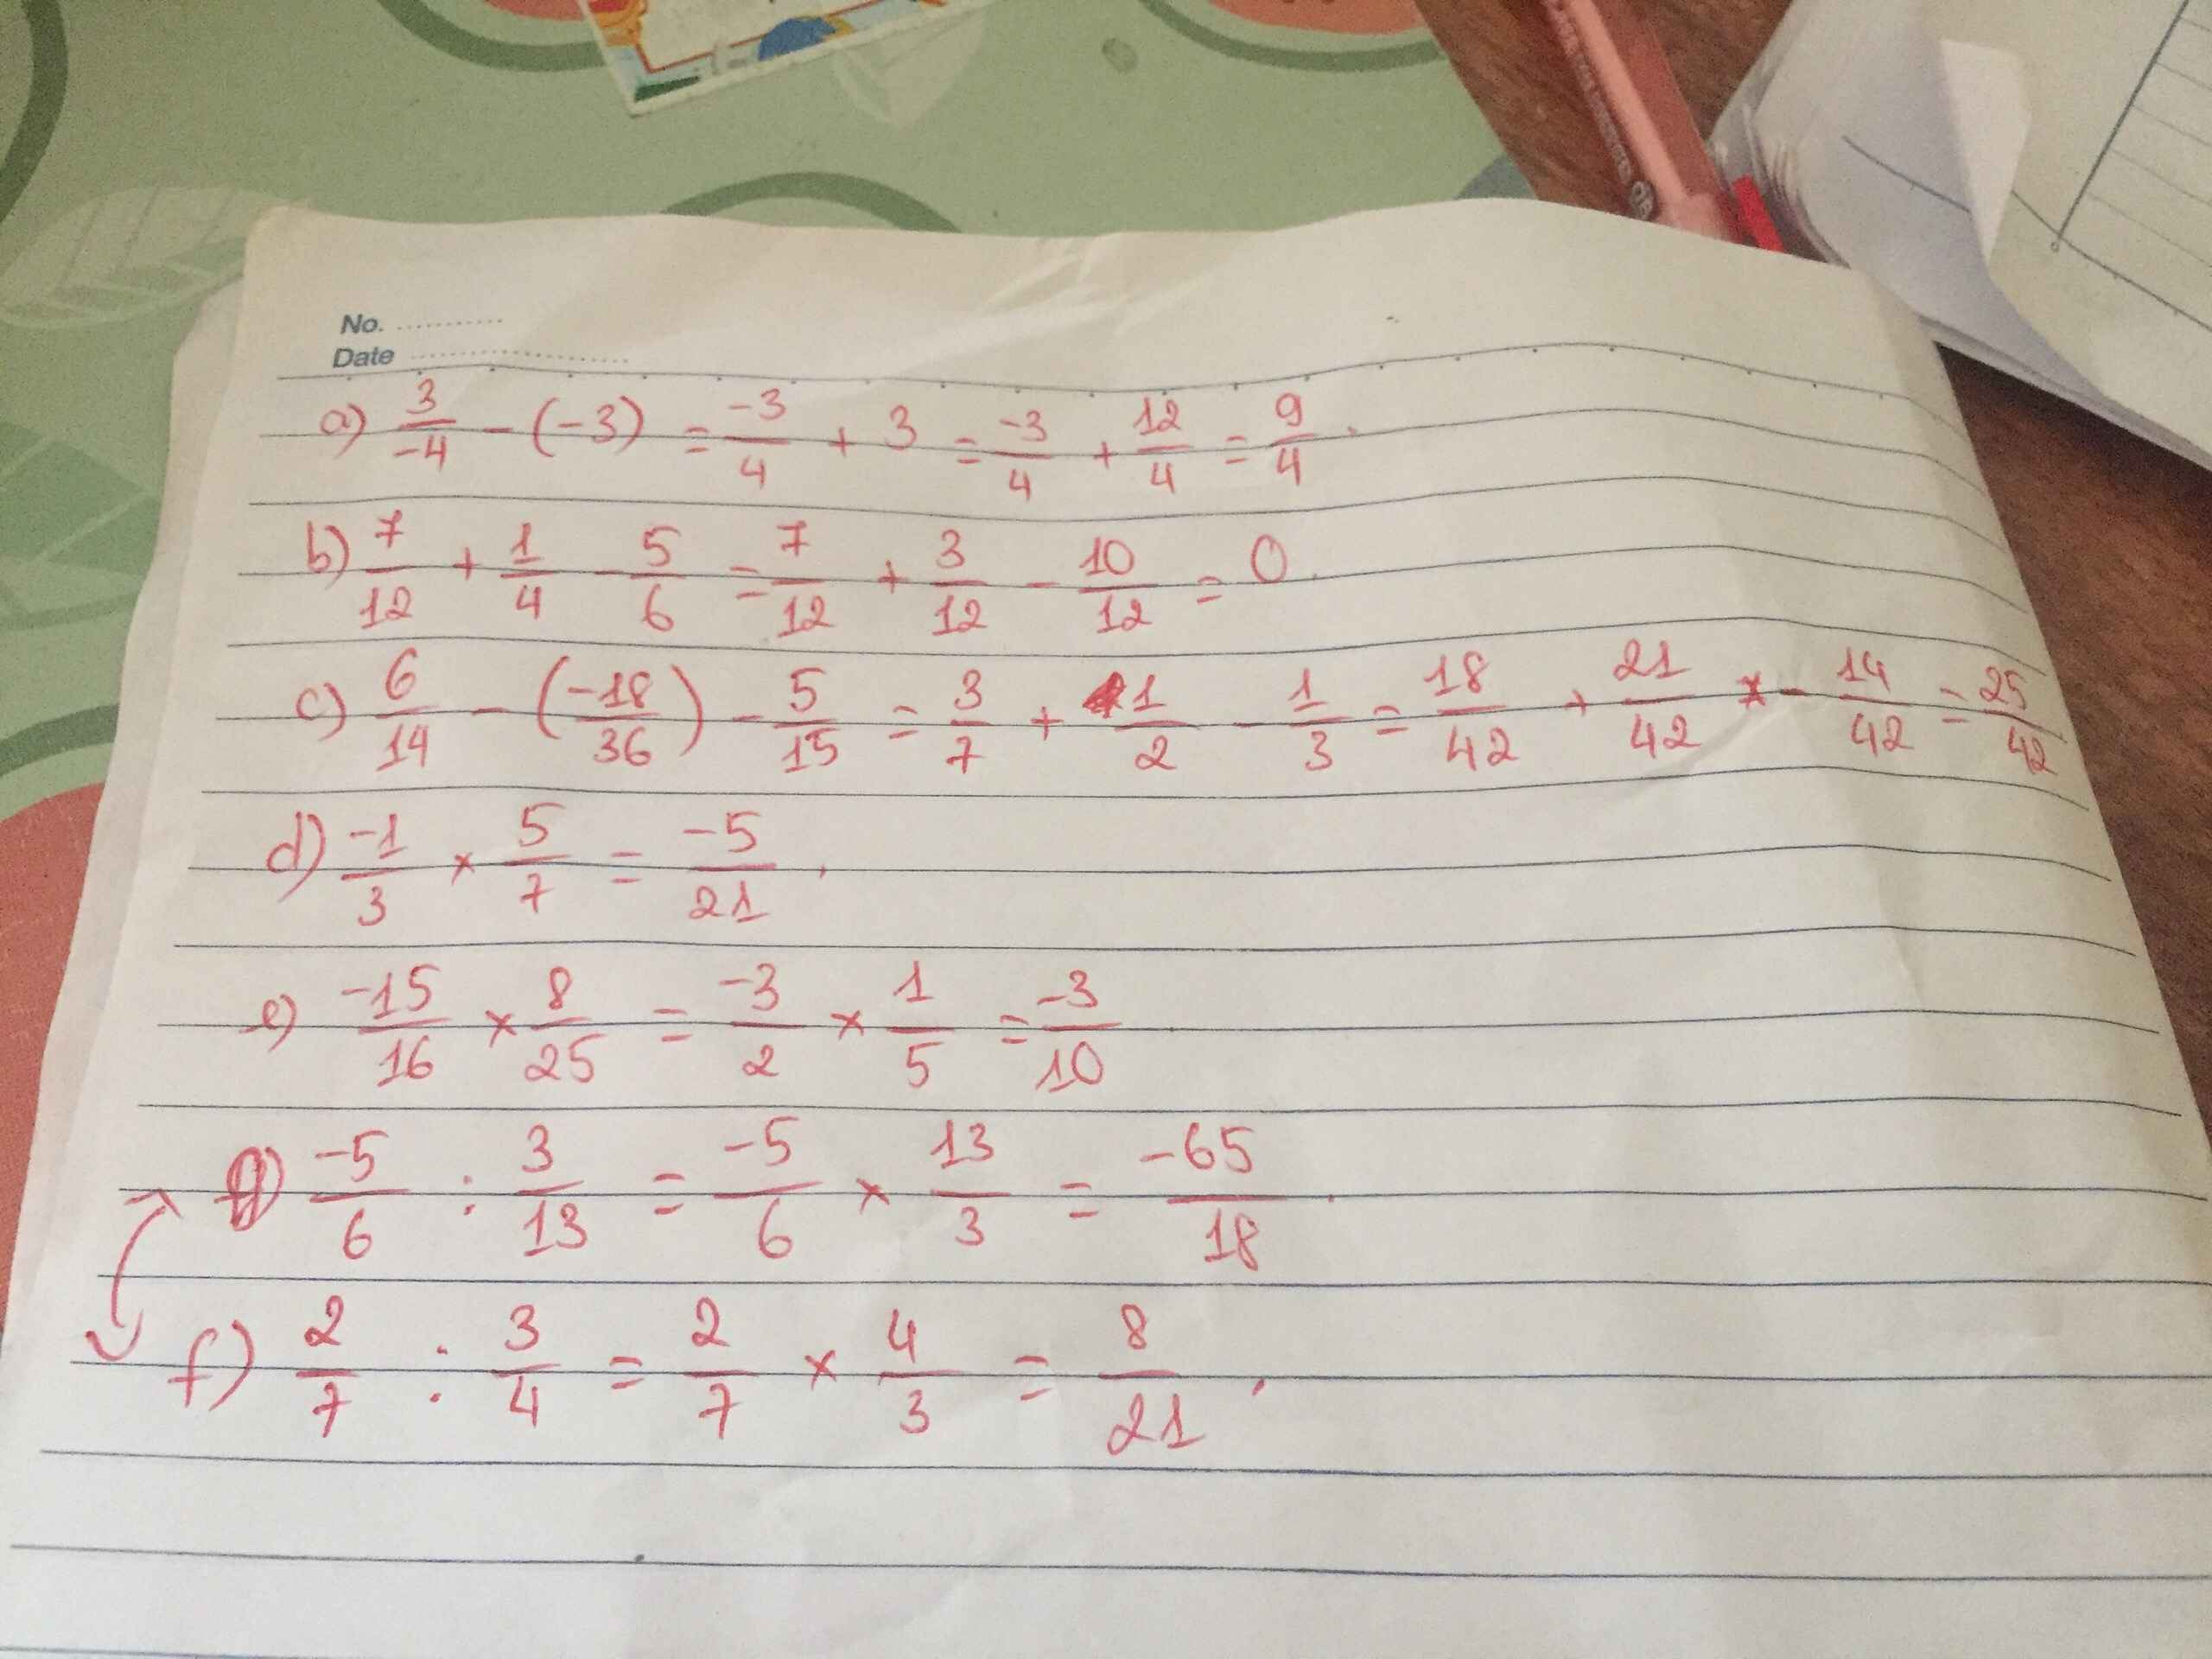 No. ...........
Date .....................
a) 3/-4 - (-3) = -3/4 + 3 = -3/4 + 12/4 = 9/4.
b) 7/12 + 1/4 - 5/6 = 7/12 + 3/12 - 10/12 = 0.
c) 6/14 - (-18/36) - 5/15 = 3/7 + 1/2 - 1/3 = 18/42 + 21/42 - 14/42 = 25/42
d) -1/3 × 5/7 = -5/21.
e) -15/16 × 8/25 = -3/2 × 1/5 = -3/10
g) -5/6 : 3/13 = -5/6 × 13/3 = -65/18.
f) 2/7 : 3/4 = 2/7 × 4/3 = 8/21.